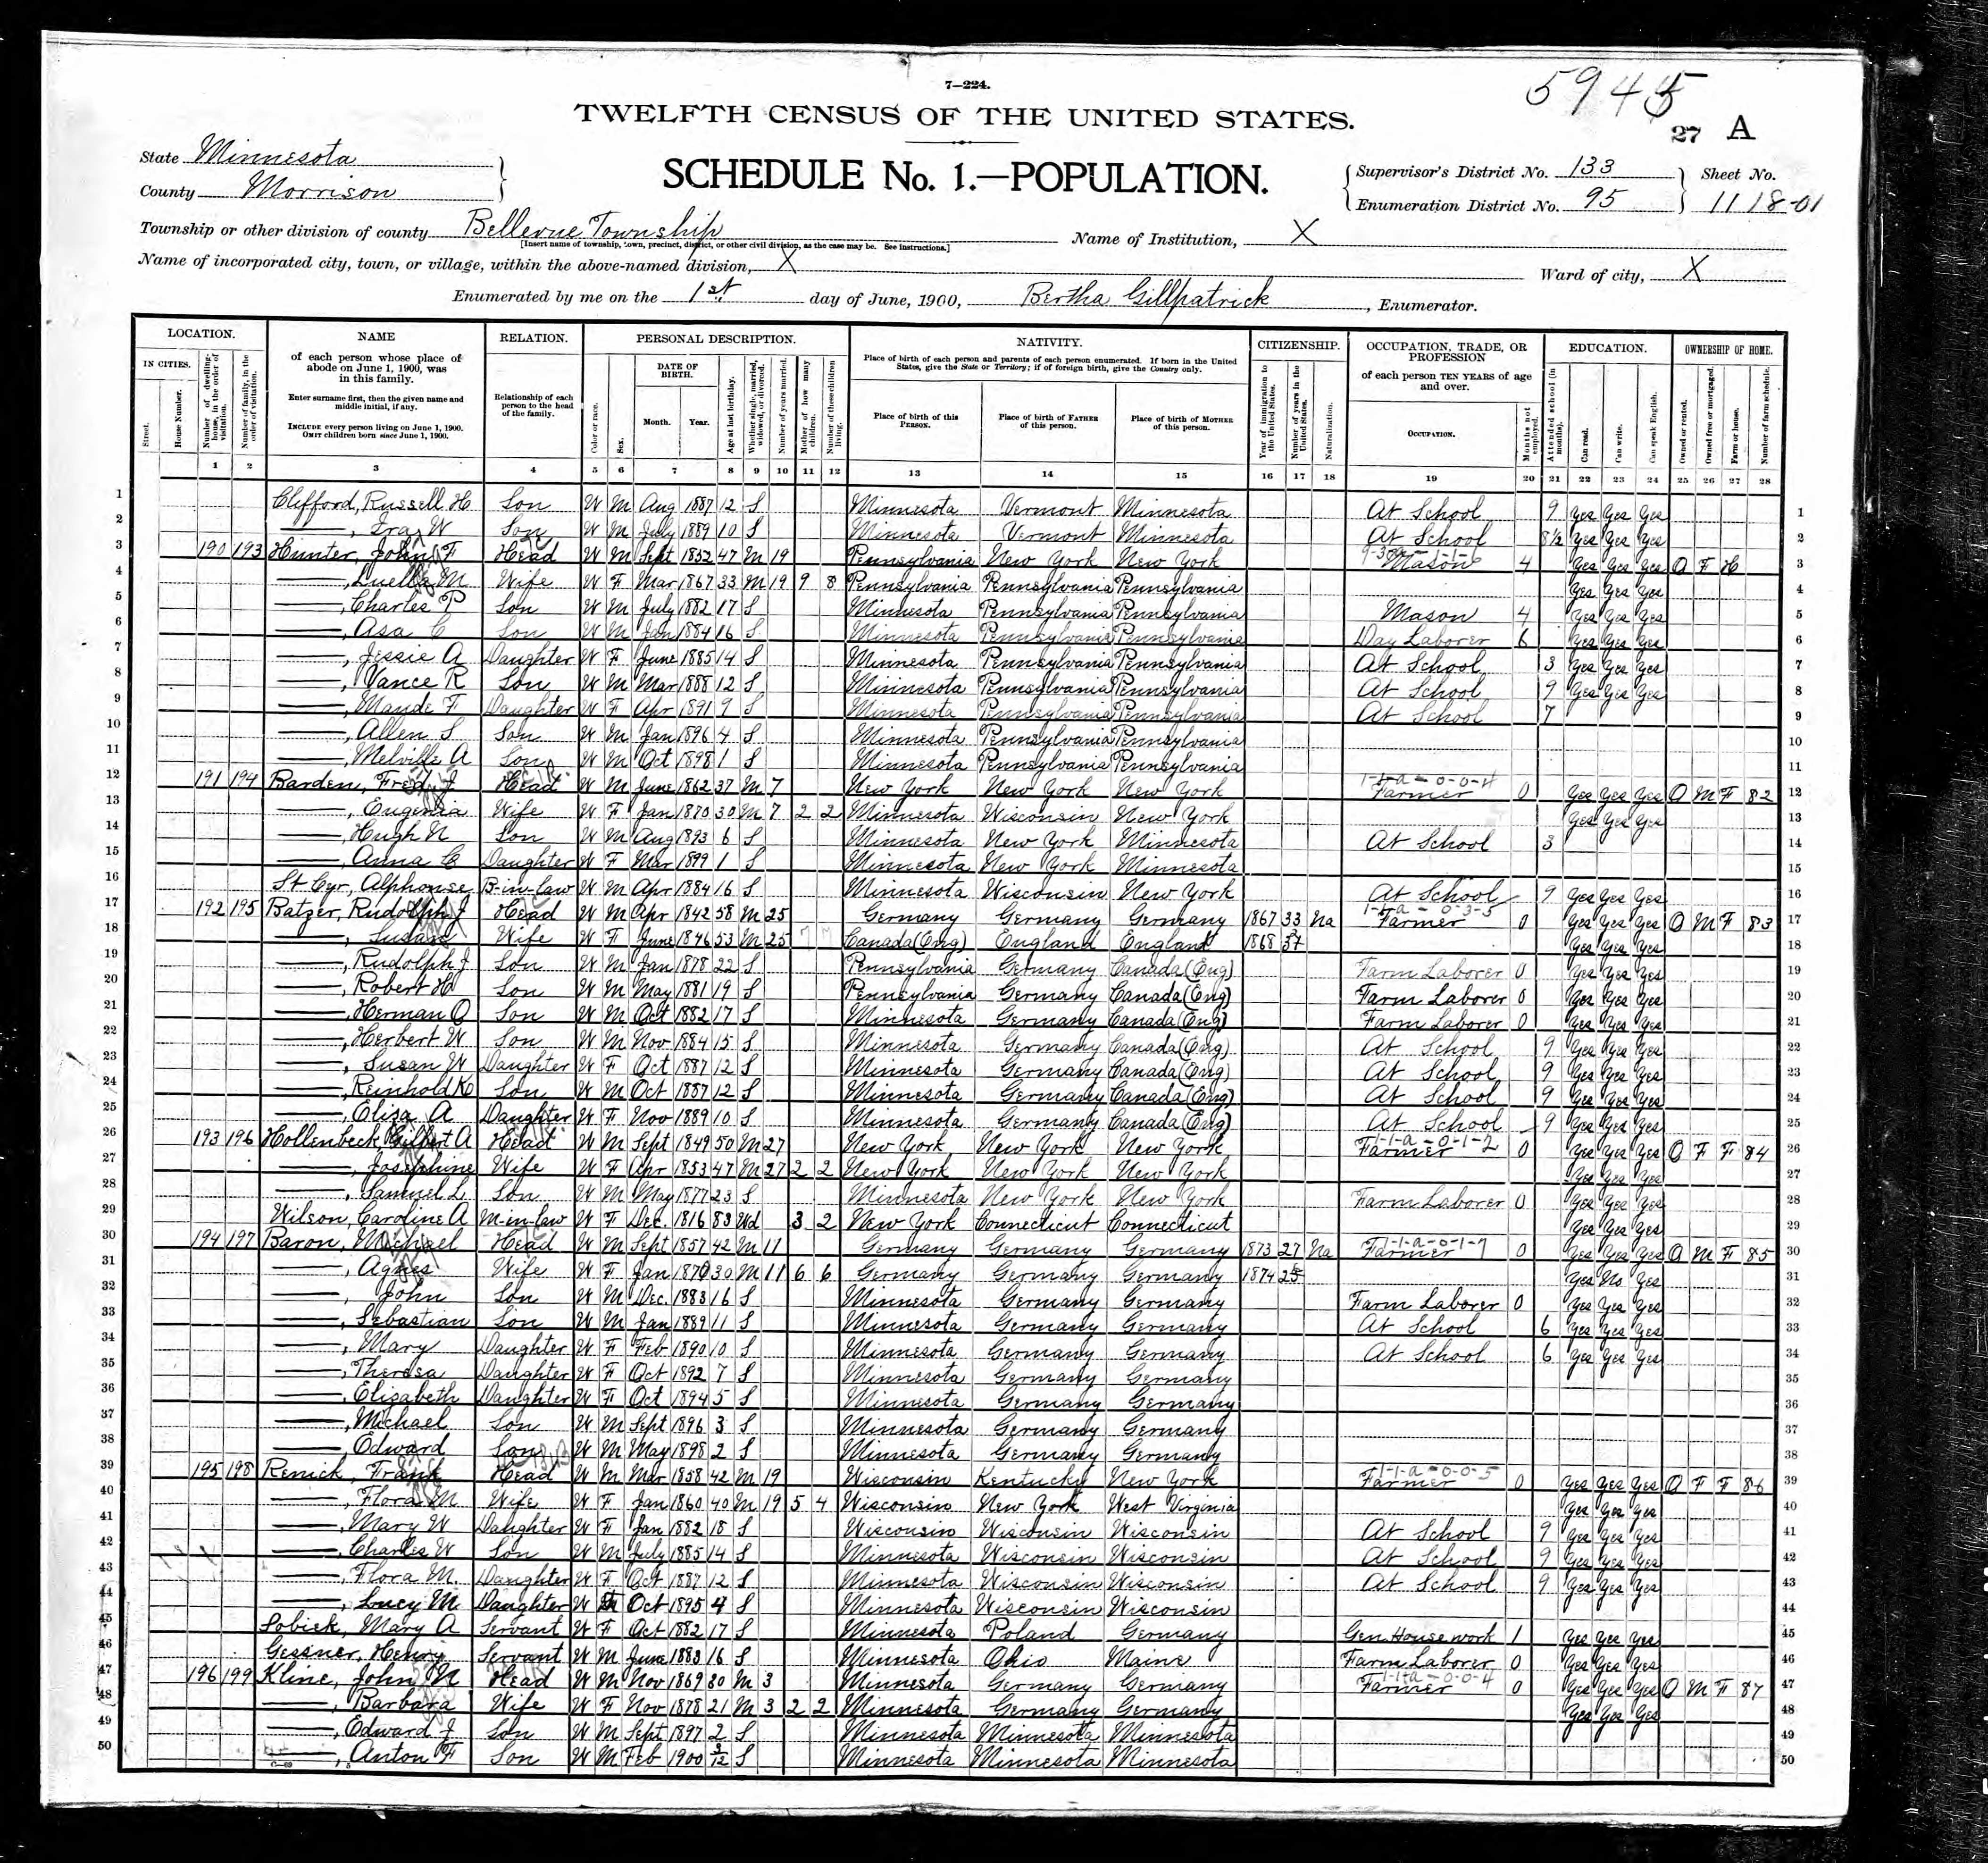 5945
7—224.
TWELFTH CENSUS OF THE UNITED STATES.
27 A
State Minnesota
County Morrison
SCHEDULE No. 1.—POPULATION.
Supervisor's District No. 133
Enumeration District No. 95
Sheet No.
11 18-01
Township or other division of county Bellevue Township
[Insert name of township, town, precinct, district, or other civil division, as the case may be. See instructions.]
Name of Institution, X
Name of incorporated city, town, or village, within the above-named division, X
Ward of city, X
Enumerated by me on the 1st day of June, 1900, Bertha Gillpatrick, Enumerator.
LOCATION. NAME RELATION. PERSONAL DESCRIPTION. NATIVITY. CITIZENSHIP. OCCUPATION, TRADE, OR PROFESSION EDUCATION. OWNERSHIP OF HOME.
IN CITIES.
Street.
House Number.
Number of dwelling-house, in the order of visitation.
Number of family, in the order of visitation.
of each person whose place of abode on June 1, 1900, was in this family.
Enter surname first, then the given name and middle initial, if any.
INCLUDE every person living on June 1, 1900.
OMIT children born since June 1, 1900.
Relationship of each person to the head of the family.
Color or race.
Sex.
DATE OF BIRTH.
Month. Year.
Age at last birthday.
Whether single, married, widowed, or divorced.
Number of years married.
Mother of how many children.
Number of these children living.
Place of birth of each person and parents of each person enumerated. If born in the United States, give the State or Territory; if of foreign birth, give the Country only.
Place of birth of this PERSON.
Place of birth of FATHER of this person.
Place of birth of MOTHER of this person.
Year of immigration to the United States.
Number of years in the United States.
Naturalization.
of each person TEN YEARS of age and over.
OCCUPATION.
Months not employed.
Attended school (in months).
Can read.
Can write.
Can speak English.
Owned or rented.
Owned free or mortgaged.
Farm or house.
Number of farm schedule.
1 2 3 4 5 6 7 8 9 10 11 12 13 14 15 16 17 18 19 20 21 22 23 24 25 26 27 28
1 Clifford, Russell H Son W M Aug 1887 12 S Minnesota Vermont Minnesota At School 9 Yes Yes Yes 1
2 —, Ira W Son W M July 1889 10 S Minnesota Vermont Minnesota At School 8½ Yes Yes Yes 2
3 190 193 Hunter, John F Head W M Sept 1852 47 M 19 Pennsylvania New York New York Mason 4 Yes Yes Yes O F H 3
4 —, Luella M Wife W F Mar 1867 33 M 19 9 8 Pennsylvania Pennsylvania Pennsylvania Yes Yes Yes 4
5 —, Charles P Son W M July 1882 17 S Minnesota Pennsylvania Pennsylvania Mason 4 Yes Yes Yes 5
6 —, Asa C Son W M Jan 1884 16 S Minnesota Pennsylvania Pennsylvania Day Laborer 6 Yes Yes Yes 6
7 —, Jessie A Daughter W F June 1885 14 S Minnesota Pennsylvania Pennsylvania At School 3 Yes Yes Yes 7
8 —, Vance R Son W M Mar 1888 12 S Minnesota Pennsylvania Pennsylvania At School 9 Yes Yes Yes 8
9 —, Maude F Daughter W F Apr 1891 9 S Minnesota Pennsylvania Pennsylvania At School 7 9
10 —, Allen S Son W M Jan 1896 4 S Minnesota Pennsylvania Pennsylvania 10
11 —, Melville A Son W M Oct 1898 1 S Minnesota Pennsylvania Pennsylvania 11
12 191 194 Barden, Fred J Head W M June 1862 37 M 7 New York New York New York 1-1-a-0-0-4 Farmer 0 Yes Yes Yes O M F 82 12
13 —, Eugenia Wife W F Jan 1870 30 M 7 2 2 Minnesota Wisconsin New York Yes Yes Yes 13
14 —, Hugh N Son W M Aug 1893 6 S Minnesota New York Minnesota At School 3 14
15 —, Anna C Daughter W F Mar 1899 1 S Minnesota New York Minnesota 15
16 St Cyr, Alphonse B-in-law W M Apr 1884 16 S Minnesota Wisconsin New York At School 9 Yes Yes Yes 16
17 192 195 Batzer, Rudolph J Head W M Apr 1842 58 M 25 Germany Germany Germany 1867 33 Na 1-1-a-0-3-5 Farmer 0 Yes Yes Yes O M F 83 17
18 —, Susan Wife W F June 1846 53 M 25 Canada (Eng) England England 1868 Yes Yes Yes 18
19 —, Rudolph J Son W M Jan 1878 22 S Pennsylvania Germany Canada (Eng) Farm Laborer 0 Yes Yes Yes 19
20 —, Robert H Son W M May 1881 19 S Pennsylvania Germany Canada (Eng) Farm Laborer 0 Yes Yes Yes 20
21 —, Herman O Son W M Oct 1882 17 S Minnesota Germany Canada (Eng) Farm Laborer 0 Yes Yes Yes 21
22 —, Herbert W Son W M Nov 1884 15 S Minnesota Germany Canada (Eng) At School 9 Yes Yes Yes 22
23 —, Susan W Daughter W F Oct 1887 12 S Minnesota Germany Canada (Eng) At School 9 Yes Yes Yes 23
24 —, Reinhold K Son W M Oct 1887 12 S Minnesota Germany Canada (Eng) At School 9 Yes Yes Yes 24
25 —, Eliza A Daughter W F Nov 1889 10 S Minnesota Germany Canada (Eng) At School 9 Yes Yes Yes 25
26 193 196 Hollenbeck, Gilbert A Head W M Sept 1849 50 M 27 New York New York New York 1-1-a-0-1-2 Farmer 0 Yes Yes Yes O F F 84 26
27 —, Josephine Wife W F Apr 1853 47 M 27 2 2 New York New York New York Yes Yes Yes 27
28 —, Samuel L Son W M May 1877 23 S Minnesota New York New York Farm Laborer 0 Yes Yes Yes 28
29 Wilson, Caroline A M-in-law W F Dec. 1816 83 Wd 3 2 New York Connecticut Connecticut Yes Yes Yes 29
30 194 197 Baron, Michael Head W M Sept 1857 42 M 11 Germany Germany Germany 1873 27 Na 1-1-a-0-1-7 Farmer 0 Yes Yes Yes O M F 85 30
31 —, Agnes Wife W F Jan 1870 30 M 11 6 6 Germany Germany Germany 1874 Yes No Yes 31
32 —, John Son W M Dec. 1883 16 S Minnesota Germany Germany Farm Laborer 0 Yes Yes Yes 32
33 —, Sebastian Son W M Jan 1889 11 S Minnesota Germany Germany At School 6 Yes Yes Yes 33
34 —, Mary Daughter W F Feb 1890 10 S Minnesota Germany Germany At School 6 Yes Yes Yes 34
35 —, Theresa Daughter W F Oct 1892 7 S Minnesota Germany Germany 35
36 —, Elizabeth Daughter W F Oct 1894 5 S Minnesota Germany Germany 36
37 —, Michael Son W M Sept 1896 3 S Minnesota Germany Germany 37
38 —, Edward Son W M May 1898 2 S Minnesota Germany Germany 38
39 195 198 Renick, Frank Head W M Mar 1858 42 M 19 Wisconsin Kentucky New York 1-1-a-0-0-5 Farmer 0 Yes Yes Yes O F F 86 39
40 —, Flora M Wife W F Jan 1860 40 M 19 5 4 Wisconsin New York West Virginia Yes Yes Yes 40
41 —, Mary W Daughter W F Jan 1882 18 S Wisconsin Wisconsin Wisconsin At School 9 Yes Yes Yes 41
42 —, Charles W Son W M July 1885 14 S Minnesota Wisconsin Wisconsin At School 9 Yes Yes Yes 42
43 —, Flora M. Daughter W F Oct 1887 12 S Minnesota Wisconsin Wisconsin At School 9 Yes Yes Yes 43
44 —, Lucy M Daughter W F Oct 1895 4 S Minnesota Wisconsin Wisconsin 44
45 Sobiek, Mary A Servant W F Oct 1882 17 S Minnesota Poland Germany Gen. House work 1 Yes Yes Yes 45
46 Gessner, Henry Servant W M June 1883 16 S Minnesota Ohio Maine Farm Laborer 0 Yes Yes Yes 46
47 196 199 Kline, John N Head W M Nov 1869 30 M 3 Minnesota Germany Germany 1-1-a-0-0-4 Farmer 0 Yes Yes Yes O M F 87 47
48 —, Barbara Wife W F Nov 1878 21 M 3 2 2 Minnesota Germany Germany Yes Yes Yes 48
49 —, Edward J Son W M Sept 1897 2 S Minnesota Minnesota Minnesota 49
50 —, Anton F Son W M Feb 1900 3/12 S Minnesota Minnesota Minnesota 50